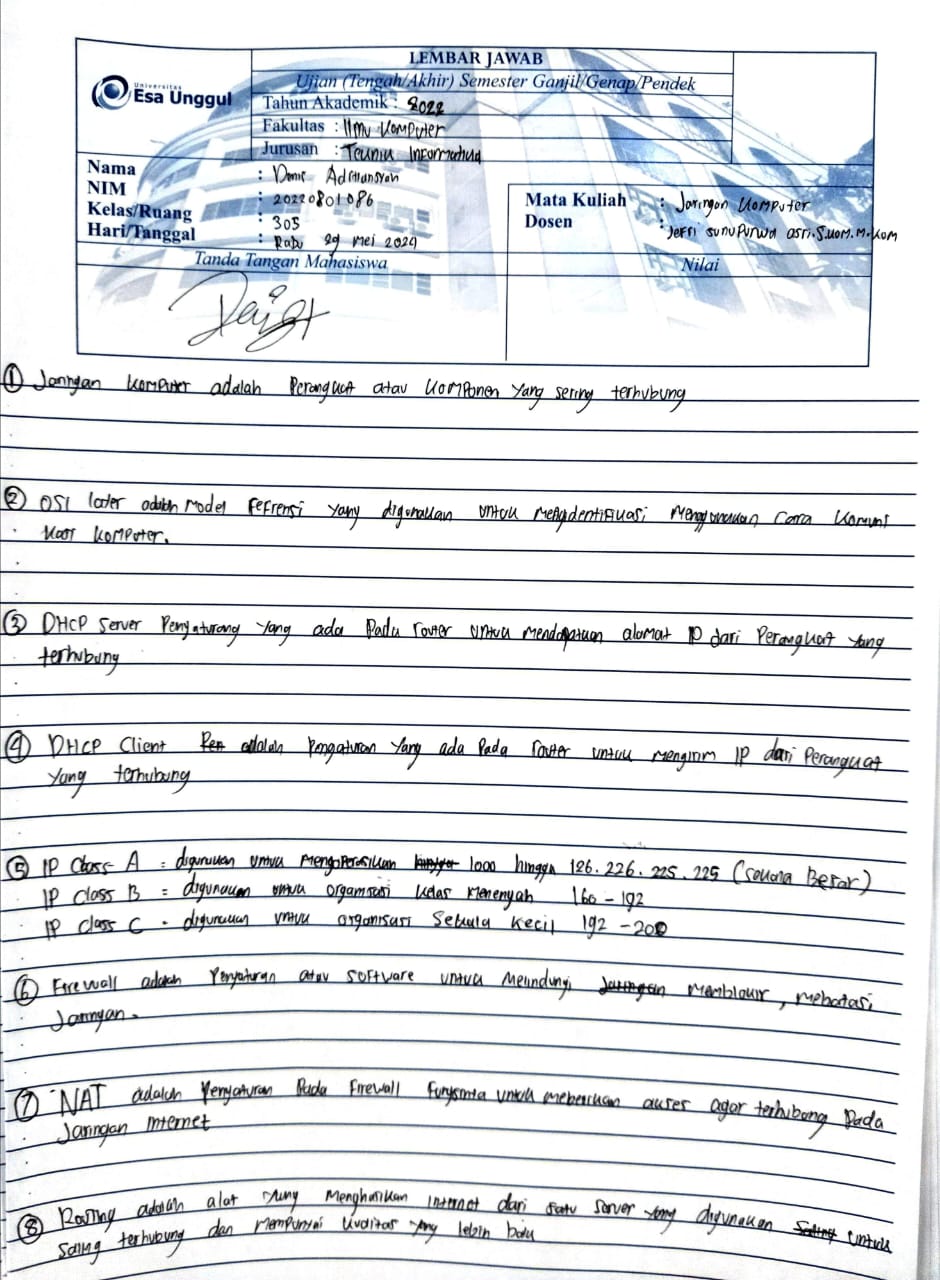 LEMBAR JAWAB
Ujian (Tengah/Akhir) Semester Ganjil/Genap/Pendek
Universitas
Esa Unggul
Tahun Akademik : 2022
Fakultas : Ilmu Komputer
Jurusan : Teknik Informatika
Nama : Denis Adriansyah
NIM : 20220801086
Kelas/Ruang : 305
Hari/Tanggal : Rabu 29 Mei 2024
Mata Kuliah : Jaringan Komputer
Dosen : Jefri Sunupurwa asri.S.Kom.M.Kom
Tanda Tangan Mahasiswa
Nilai
① Jaringan Komputer adalah Perangkat atau Komponen yang sering terhubung
② OSI later adalah Model Fefrensi yang digunakan untuk mengidentifikasi menggunakan cara Komuni
kasi komputer.
③ DHCP Server Pengaturang yang ada Pada router untuk mendapatkan alamat IP dari Perangkat yang
terhubung
④ DHCP Client Pen adalah pengaturan yang ada Pada router untuk mengirim IP dari Perangkat
yang terhubung
⑤ IP Class A = digunakan untuk Mengoperasikan 1000 hingga 126.226.225.225 (skala Besar)
IP Class B = digunakan untuk organisasi kelas Menengah 160 - 192
IP Class C = digunakan untuk organisasi Sekala kecil 192 - 200
⑥ Firewall adalah Pengaturan atau software untuk melindungi Jaringan Memblokir, mebatasi
Jaringan.
⑦ NAT adalah Pengaturan Pada Firewall Fungsinta untuk meberikan akses agar terhubung Pada
Jaringan internet
⑧ Routing adalah alat yang Menghasilkan internet dari satu server yang digunakan Saling untuk
Saling terhubung dan Mempunyai kualitas yang lebih baik